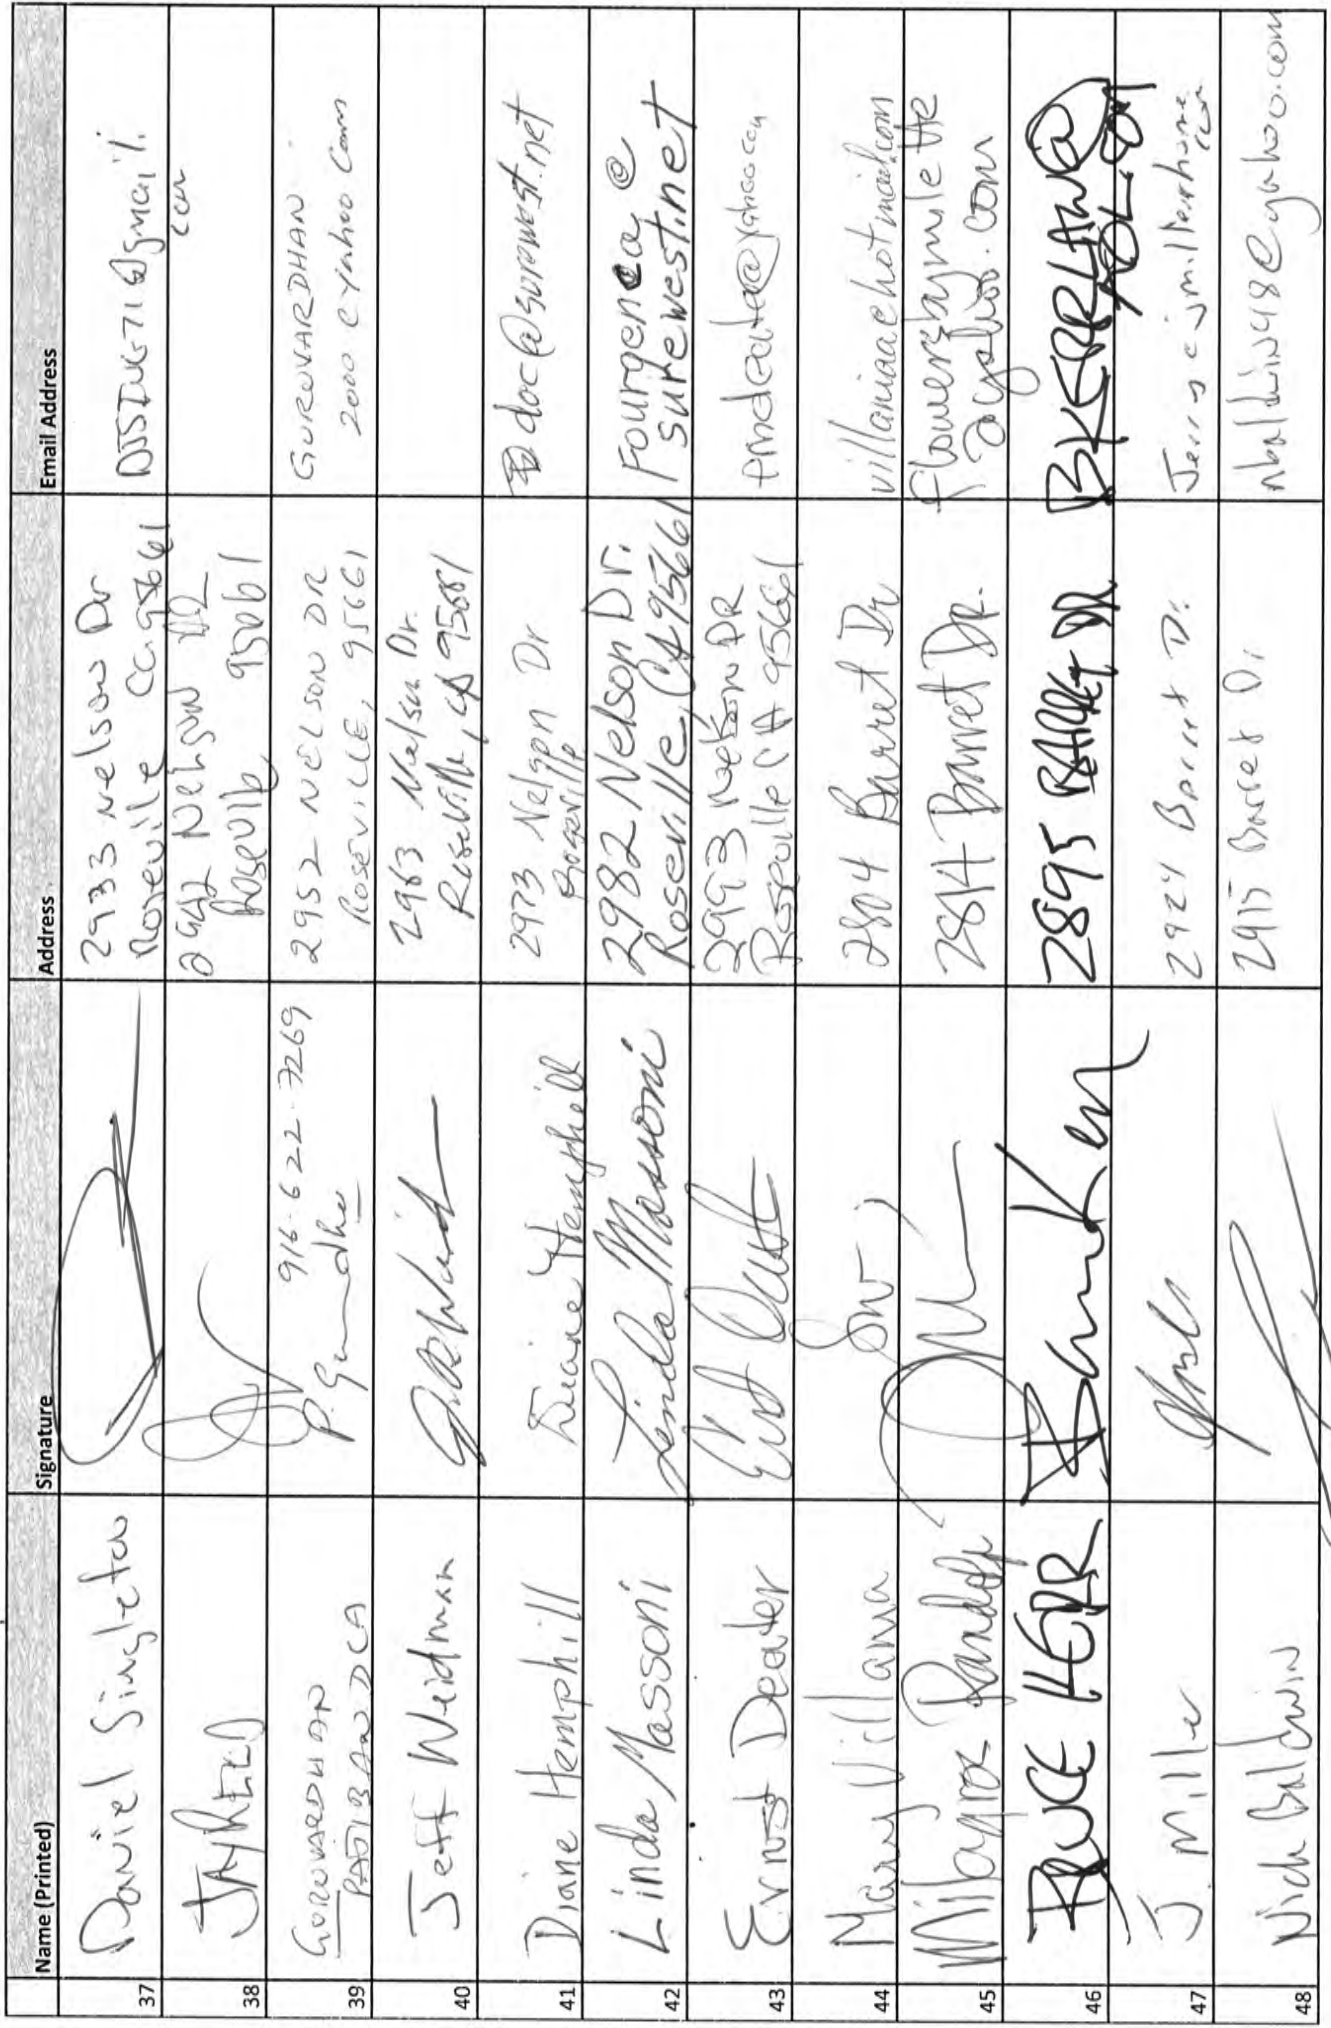 Name (Printed) Signature Address Email Address
37 Daniel Singleton 2933 Nelson Dr
Roseville Ca 95661
38 2942 Nelson DR
95661
39 GURUVARDHAN
916-622-7269
2952 NELSON DR
ROSEVILLE, 95661
GURUVARDHAN
2000 @ yahoo com
40 Jeff Weidman 2963 Nelson Dr.
Roseville, CA 95661
41 Diane Hemphill Diane Hemphill 2973 Nelson Dr
Roseville
doc@surewest.net
42 Linda Massoni Linda Massoni 2982 Nelson Dr.
Roseville, CA 95661
Fourgen @
surewest.net
43 Ernest Deater 2993 Nelson DR
Roseville CA 95661
44 Mary Villania 2804 Barret Dr villaniaa@hotmail.com
45 Milagros Randolph 2814 Barret Dr.
@yahoo.com
46 BRUCE KERR Bruce Kerr 2895 BARRET DR BKERRLAW@
AOL.COM
47 J. Miller 2924 Barret Dr.
48 Nick Baldwin 2915 Barret Dr nbaldwin48@yahoo.com